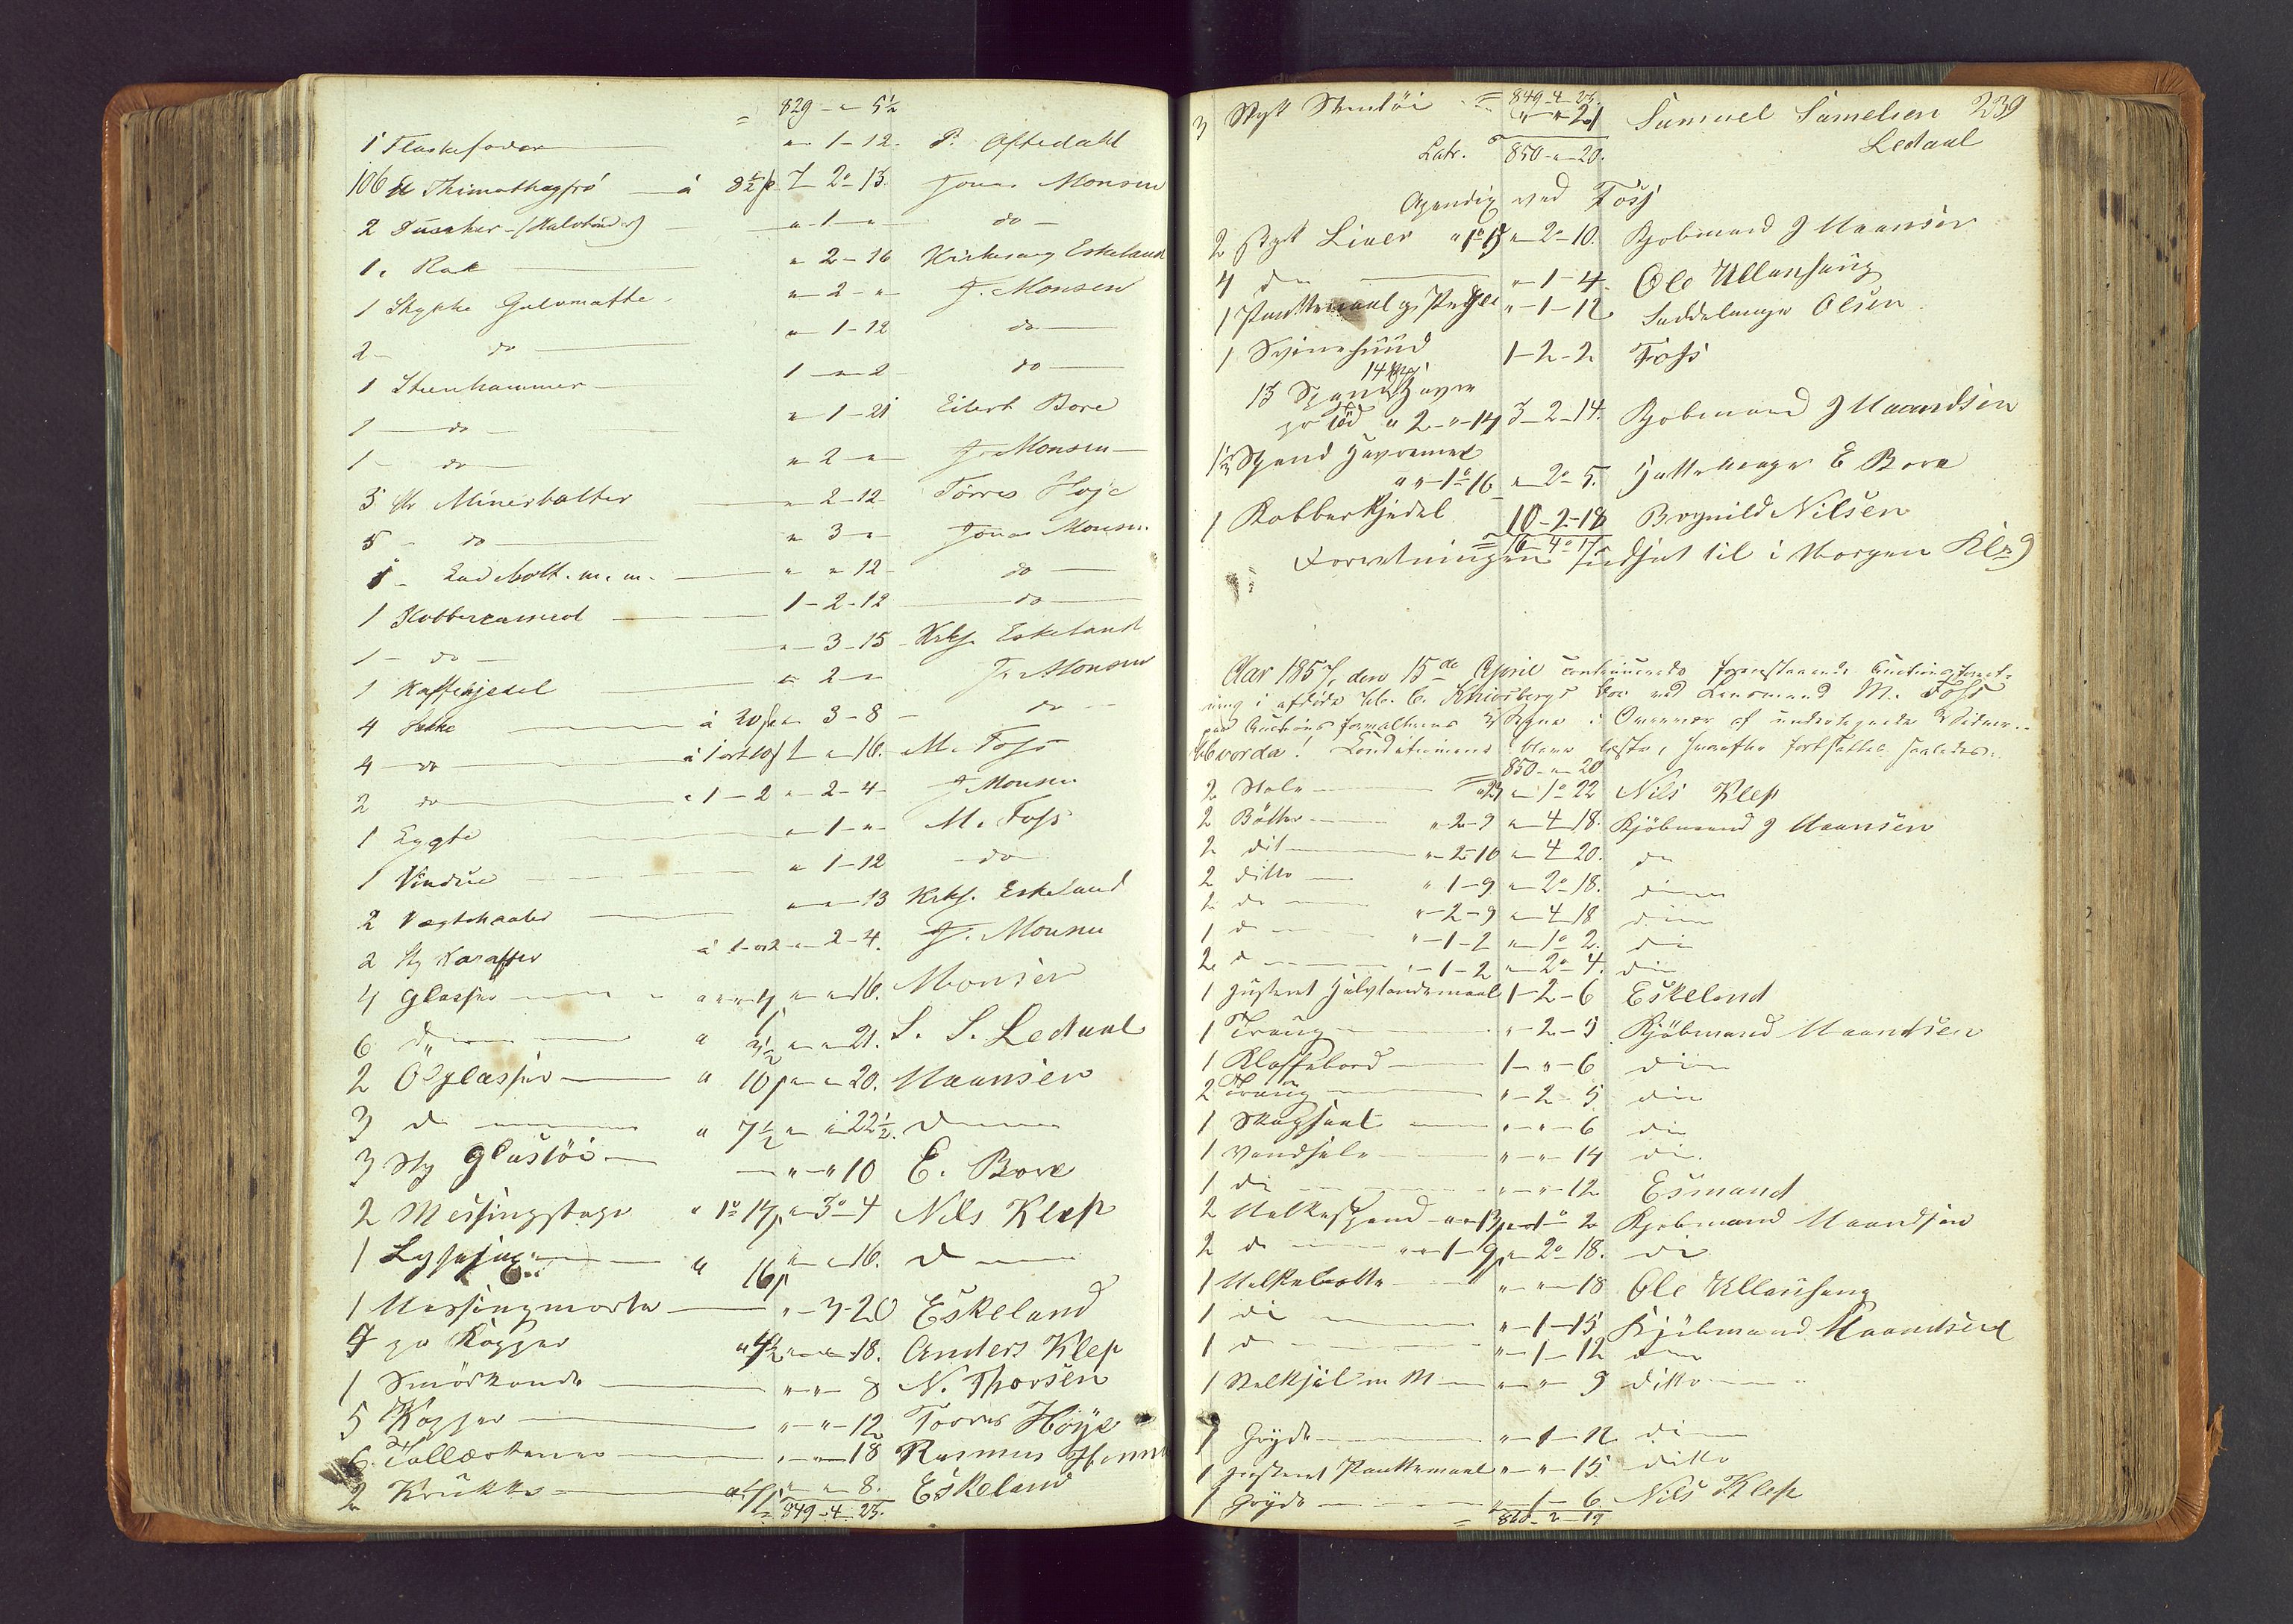 = 829 - " 5½
1 Flaskefoder " - 1 - 12. P. Aftedahl
106 ℔ Thimothægfrø à 8½ ſ 7 - 2 - 13. Jonas Monsen
2 Tuscher - (Halvtønder) " - 1 - " do
1. Rok " - 2 - 16 Kirkesang Eskeland
1 Stykke Gulvmatte " - 2 - " J. Monsen
2 - do " - 1 - 12 do
1 Steenhammer 1 - " - 2 do
1 - do " - 1 - 21 Eilert Bore
1 - do " - 2 - " J. Monsen
3 St Minerbolter " - 2 - 12 Tørres Høje
5 - do " - 3 - " Jonas Monsen
1 - Ladebolt. m. m. " " 12 - do
1 Kobbercasserol 1 - 2 - 12 do
1 - do " - 3 - 15 - Krks. Eskeland
1 Kaffekjedel " 2 - " J. Monsen
4 Sække à 20 ſ " 3 - 8 - do
4 - do à 1 ort 10 ſ 1 - " - 16. M. Foss
2 do " 1 - 2 " - 2 - 4 - J Monsen
1 Lygte " - 1 - " - M. Foss
1 Vindue " 1 - 12 do
2 Vægtskaaler " - " - 13 Krks. Eskeland
2 St Karafler à 1 - " 2 " - 2 - 4. J. Monsen
4 Glasser " " " 4 " - " 16. Monsen
6 do " 3½ " - " 21. S. S. Ledaal
2 Ølglasser " 10 ſ " - " 20. Maansen
3 do " 7½ " - " 22½. do
3 St Glastøi " - " 10 E. Bore
2 Messingstage " 1 - 14 ſ " 3 - 4 Nils Klep
1 Lysesax " 16 ſ " - " 16. do
1 Messingmorter " - 3 - 20 Eskeland
4 pr Kopper " 4½ " - " 18. Anders Klep
1 Smørkande " " 8 N. Thorsen
5 Kopper " - " - 12 Torres Høye
6. Tallerkener " - " 18 Rasmus
2 Krukke " 4 " - " 8. Eskeland
= 849 - 4 - 23.
239
= 849 - 4 - 23.
3 Styk Stentøi " - " 21 Samuel Samelsen
Ledaal
Latr. 850 - " - 20.
Apendix ved Foss
2 Styk Liner " 1 - 17 " - 2 - 10. Kjøbmand J Maansen
4 do " - 1 - 4. Ole Ullenhaug
1 " - 1 - 12 Saddelmager Olsen
1 Svinehund 1 - 2 - 2 Foss
14
13 Spand Havre
pr Tød " 2 - " - 14 3 - 2 - 14. Kjøbmand J Maandsen
1½ Spand Havremel
" " - 1 - 16 " - 2 - 5. Hattemager E Bore
1 Kobberkjedel 10 - 2 - 18 Brynild Nilsen
= 16 - 4 - 17
Forretningen udsat til i Morgen Kl. 9
Aar 1857, den 15de April continuerede foranstaaende Auctionsforret-
ning i afdøde Kb. C. Kniosbergs Boe ved Lensmand M. Foss
paa Auctionsforvalterens Vegne i Overvær af undertegnede Vidner.
Hvorda! Conditionerne bleve læste, hvorefter fortsattes saaledes.
= 850 - " - 20
2 Stole " 23 " - 1 - 22 Nils Klep
2 Bøtter " - 2 - 9 " - 4 - 18. Kjøbmand J Maansen
2 dit " - 2 - 10 " - 4 - 20. do
2 ditto " 1 - 9 " - 2 - 18. do
2 do " - 2 - 9 " - 4 - 18 do
1 do " - 1 - 2 " - 1 - 2. do
2 do " - 1 - 2 " - 2 - 4. do
1 Justeret Halvtøndemaal 1 - 2 - 6 Eskeland
1 Traug " - 2 - 5 Kjøbmand Maandsen
1 Klaffebord 1 - " - 6 do
2 Traug " - 2 - 5 do
1 " - " - 6 do
1 Vandsele " - " - 14 do.
1 do " - " - 12 Esmand
2 Melkespand " " 13 ſ " - 1 - 2 Kjøbmand Maandsen
2 do " " 1 - 9 ſ " - 2 - 18. do
1 Melkebøtte " - " - 18 Ole Ullenhaug
1 do " - 1 - 15 Kjøbmand Maandsen
1 do " - 1 - 12 do
1 " - " 9 ditto
1 Gryde " - 1 - 12 do
1 justeret " - " - 15 ditto
1 Gryde " - 1 - 6 Nils Klep
= 860 - 2 - 17